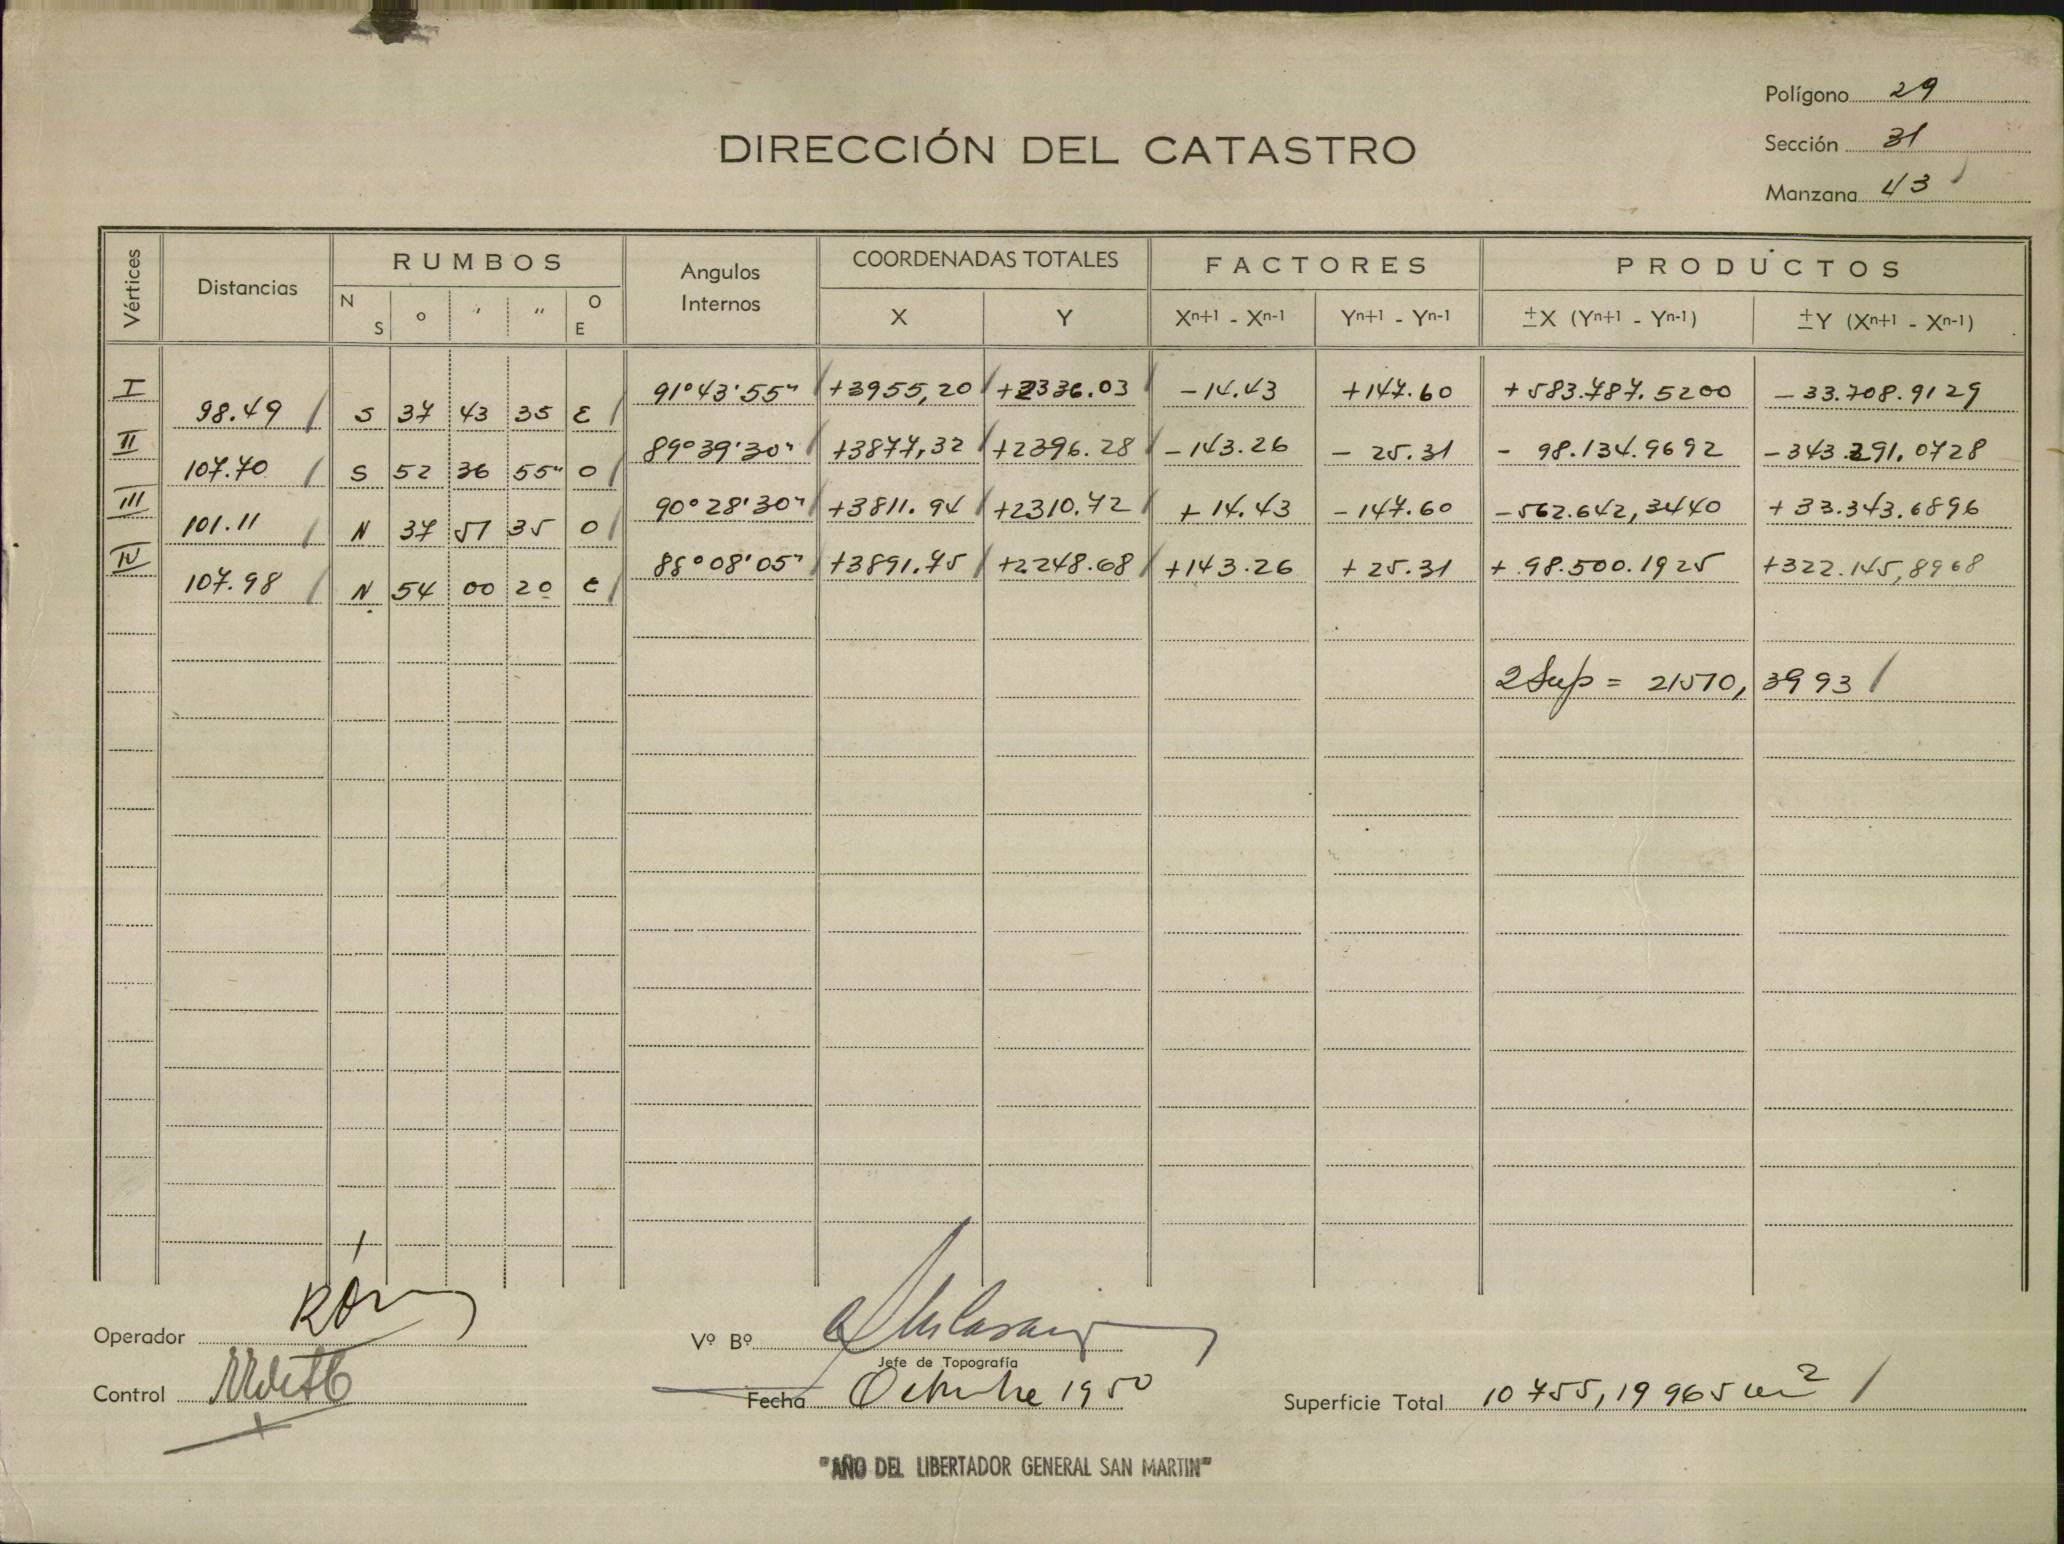 Polígono 29
DIRECCIÓN DEL CATASTRO
Sección 31
Manzana 43
Vértices Distancias RUMBOS Angulos Internos COORDENADAS TOTALES FACTORES PRODUCTOS
N S o ' " O E X Y Xn+1 - Xn-1 Yn+1 - Yn-1 ±X (Yn+1 - Yn-1) ±Y (Xn+1 - Xn-1)
I 91°43'55" +3955,20 +2336.03 -14.43 +147.60 +583.787.5200 -33.708.9129
98.49 S 37 43 35 E
II 89°39'30" +3877,32 +2396.28 -143.26 -25.31 -98.134.9692 -343.291.0728
107.70 S 52 36 55" O
III 90°28'30" +3811.94 +2310.72 +14.43 -147.60 -562.642,3440 +33.343.6896
101.11 N 37 51 35 O
IV 88°08'05" +3891.75 +2248.68 +143.26 +25.31 +98.500.1925 +322.145,8968
107.98 N 54 00 20 E
2 Sup = 21510,3993
Operador
Vº Bº
Jefe de Topografía
Control
Fecha Octubre 1950
Superficie Total 10755,19965 m2
"AÑO DEL LIBERTADOR GENERAL SAN MARTIN"